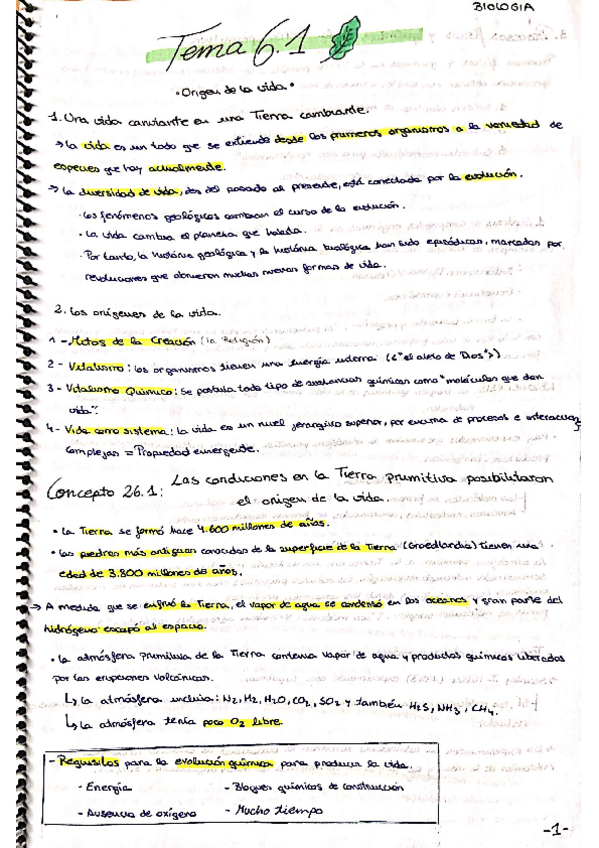 BIOLOGIA
Tema 6.1
• Origen de la vida •
1. Una vida cambiante en una Tierra cambiante.
→ La vida es un todo que se extiende desde los primeros organismos a la variedad de
especies que hay actualmente.
→ La diversidad de vida, des del pasado al presente, está conectada por la evolución.
· Los fenómenos geológicos cambian el curso de la evolución.
· La vida cambia el planeta que habita.
· Por tanto, la historia geológica y la historia biológica han sido episódicas, marcadas por
revoluciones que abrieron muchas nuevas formas de vida.
2. Los orígenes de la vida.
1 - Mitos de la Creación (la Religión)
2 - Vitalismo: los organismos tienen una energía interna ("el aleto de Dios")
3 - Vitalismo Químico: Se postula todo tipo de sustancias químicas como "moléculas que dan
vida".
4 - Vida como sistema: la vida es un nivel jerárquico superior, por encima de procesos e interacciones
complejas = Propiedad emergente.
Concepto 26.1: Las condiciones en la Tierra primitiva posibilitaron
el origen de la vida.
• La Tierra se formó hace 4.600 millones de años.
• Las piedras más antiguas conocidas de la superficie de la Tierra (Groedlandia) tienen una
edad de 3.800 millones de años.
→ A medida que se enfrió la Tierra, el vapor de agua se condensó en los oceanos y gran parte del
hidrógeno escapó al espacio.
• La atmósfera primitiva de la Tierra contenia vapor de agua y productos químicos liberados
por las erupciones volcánicas.
↳ La atmósfera incluia: N2, H2, H2O, CO2, SO2 y también H2S, NH3, CH4.
↳ La atmósfera tenía poco O2 libre.
- Requisitos para la evolución química para producir la vida.
- Energía - Bloques químicos de construcción
- Ausencia de oxígeno - Mucho tiempo
-1-